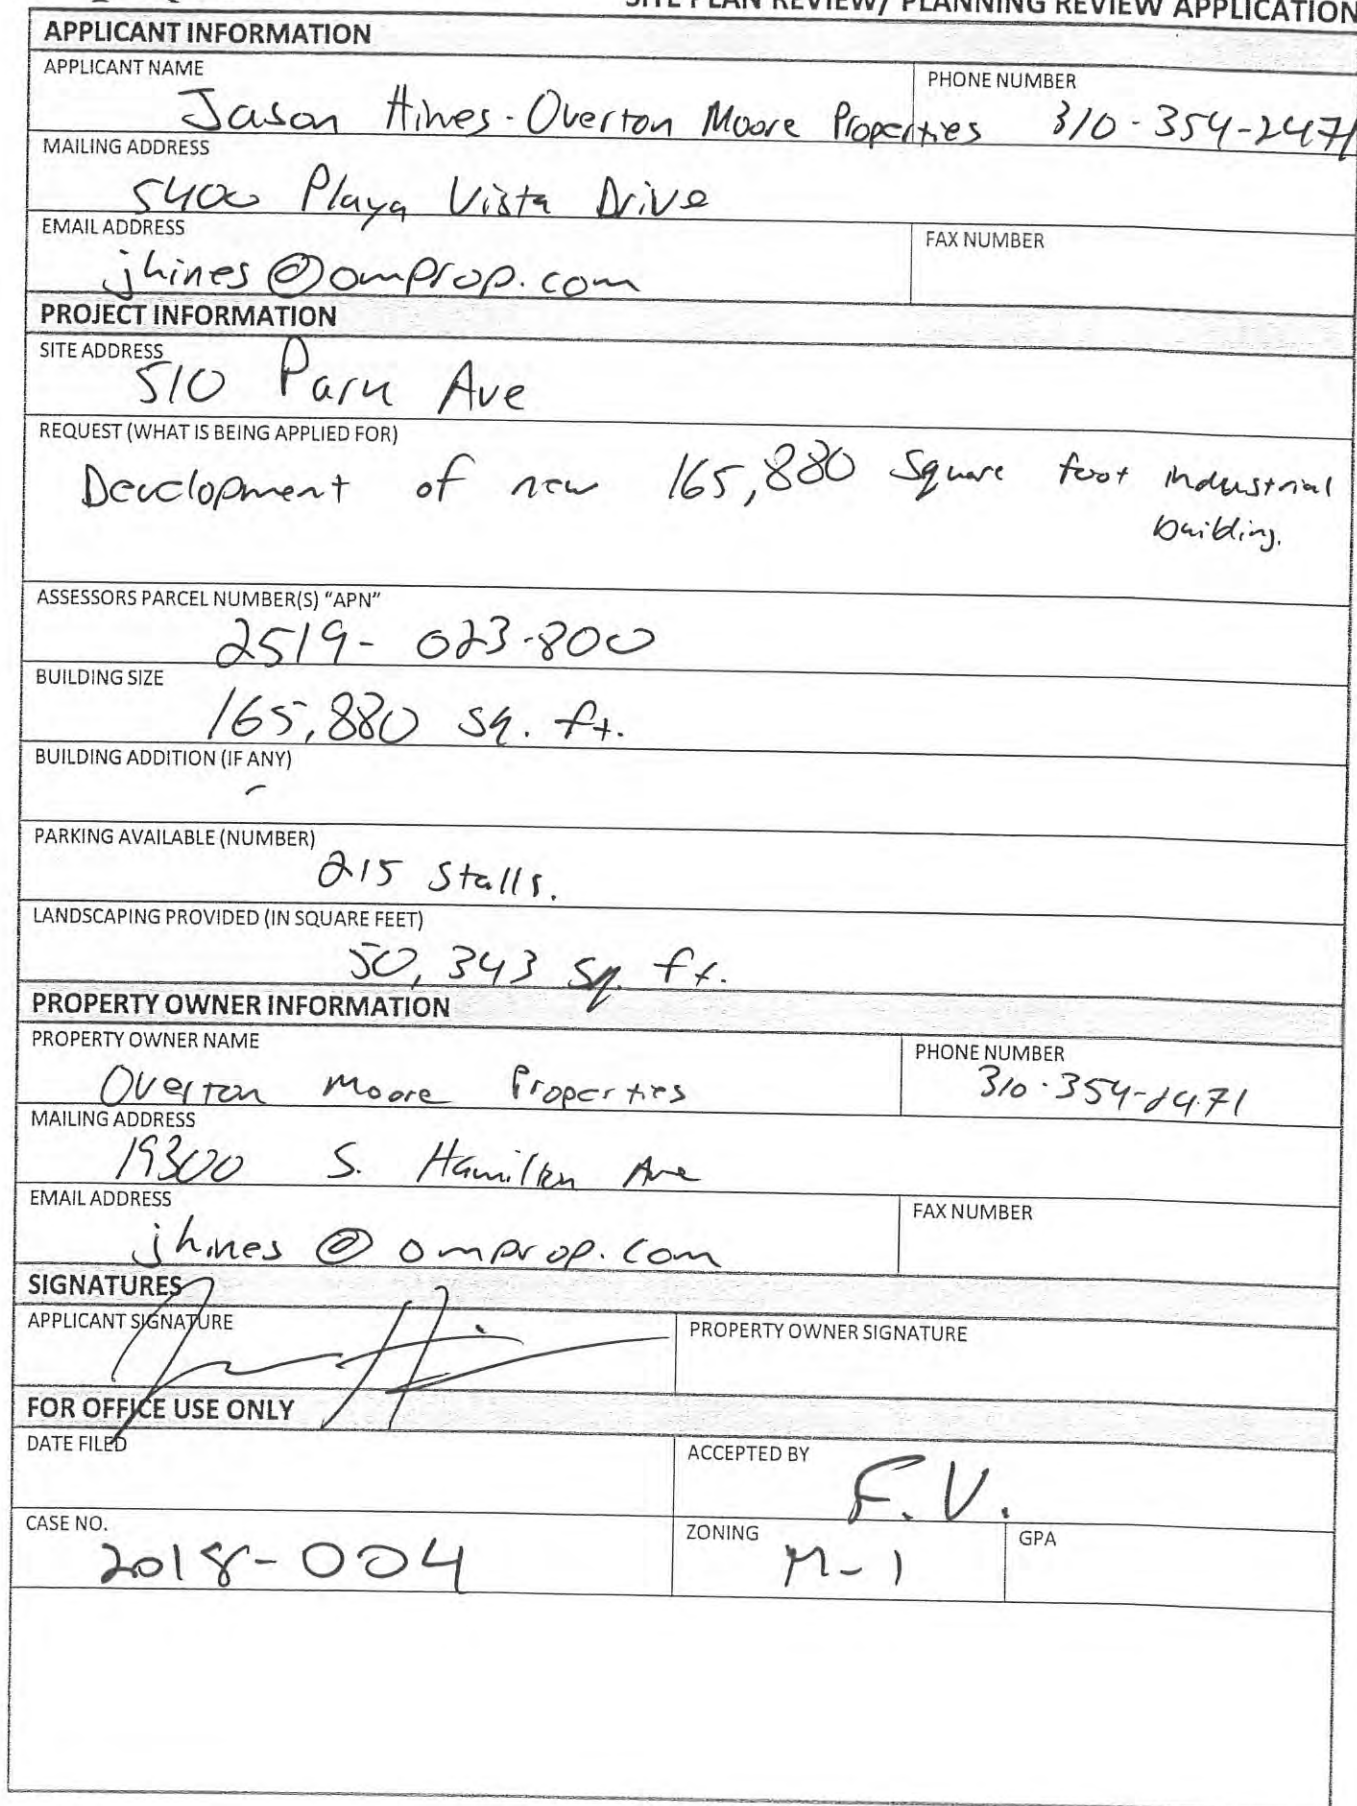 SITE PLAN REVIEW/ PLANNING REVIEW APPLICATION
APPLICANT INFORMATION
APPLICANT NAME
PHONE NUMBER
Jason Hines - Overton Moore Properties 310-354-2471
MAILING ADDRESS
5400 Playa Vista Drive
EMAIL ADDRESS
FAX NUMBER
jhines@omprop.com
PROJECT INFORMATION
SITE ADDRESS
510 Park Ave
REQUEST (WHAT IS BEING APPLIED FOR)
Development of new 165,880 Square foot industrial
building.
ASSESSORS PARCEL NUMBER(S) "APN"
2519-023-800
BUILDING SIZE
165,880 sq. ft.
BUILDING ADDITION (IF ANY)
-
PARKING AVAILABLE (NUMBER)
215 Stalls.
LANDSCAPING PROVIDED (IN SQUARE FEET)
50,343 sq. ft.
PROPERTY OWNER INFORMATION
PROPERTY OWNER NAME
PHONE NUMBER
Overton Moore Properties
310-354-2471
MAILING ADDRESS
19300 S. Hamilton Ave
EMAIL ADDRESS
FAX NUMBER
jhines@omprop.com
SIGNATURES
APPLICANT SIGNATURE
PROPERTY OWNER SIGNATURE
FOR OFFICE USE ONLY
DATE FILED
ACCEPTED BY
F.V.
CASE NO.
ZONING
GPA
2018-004
M-1